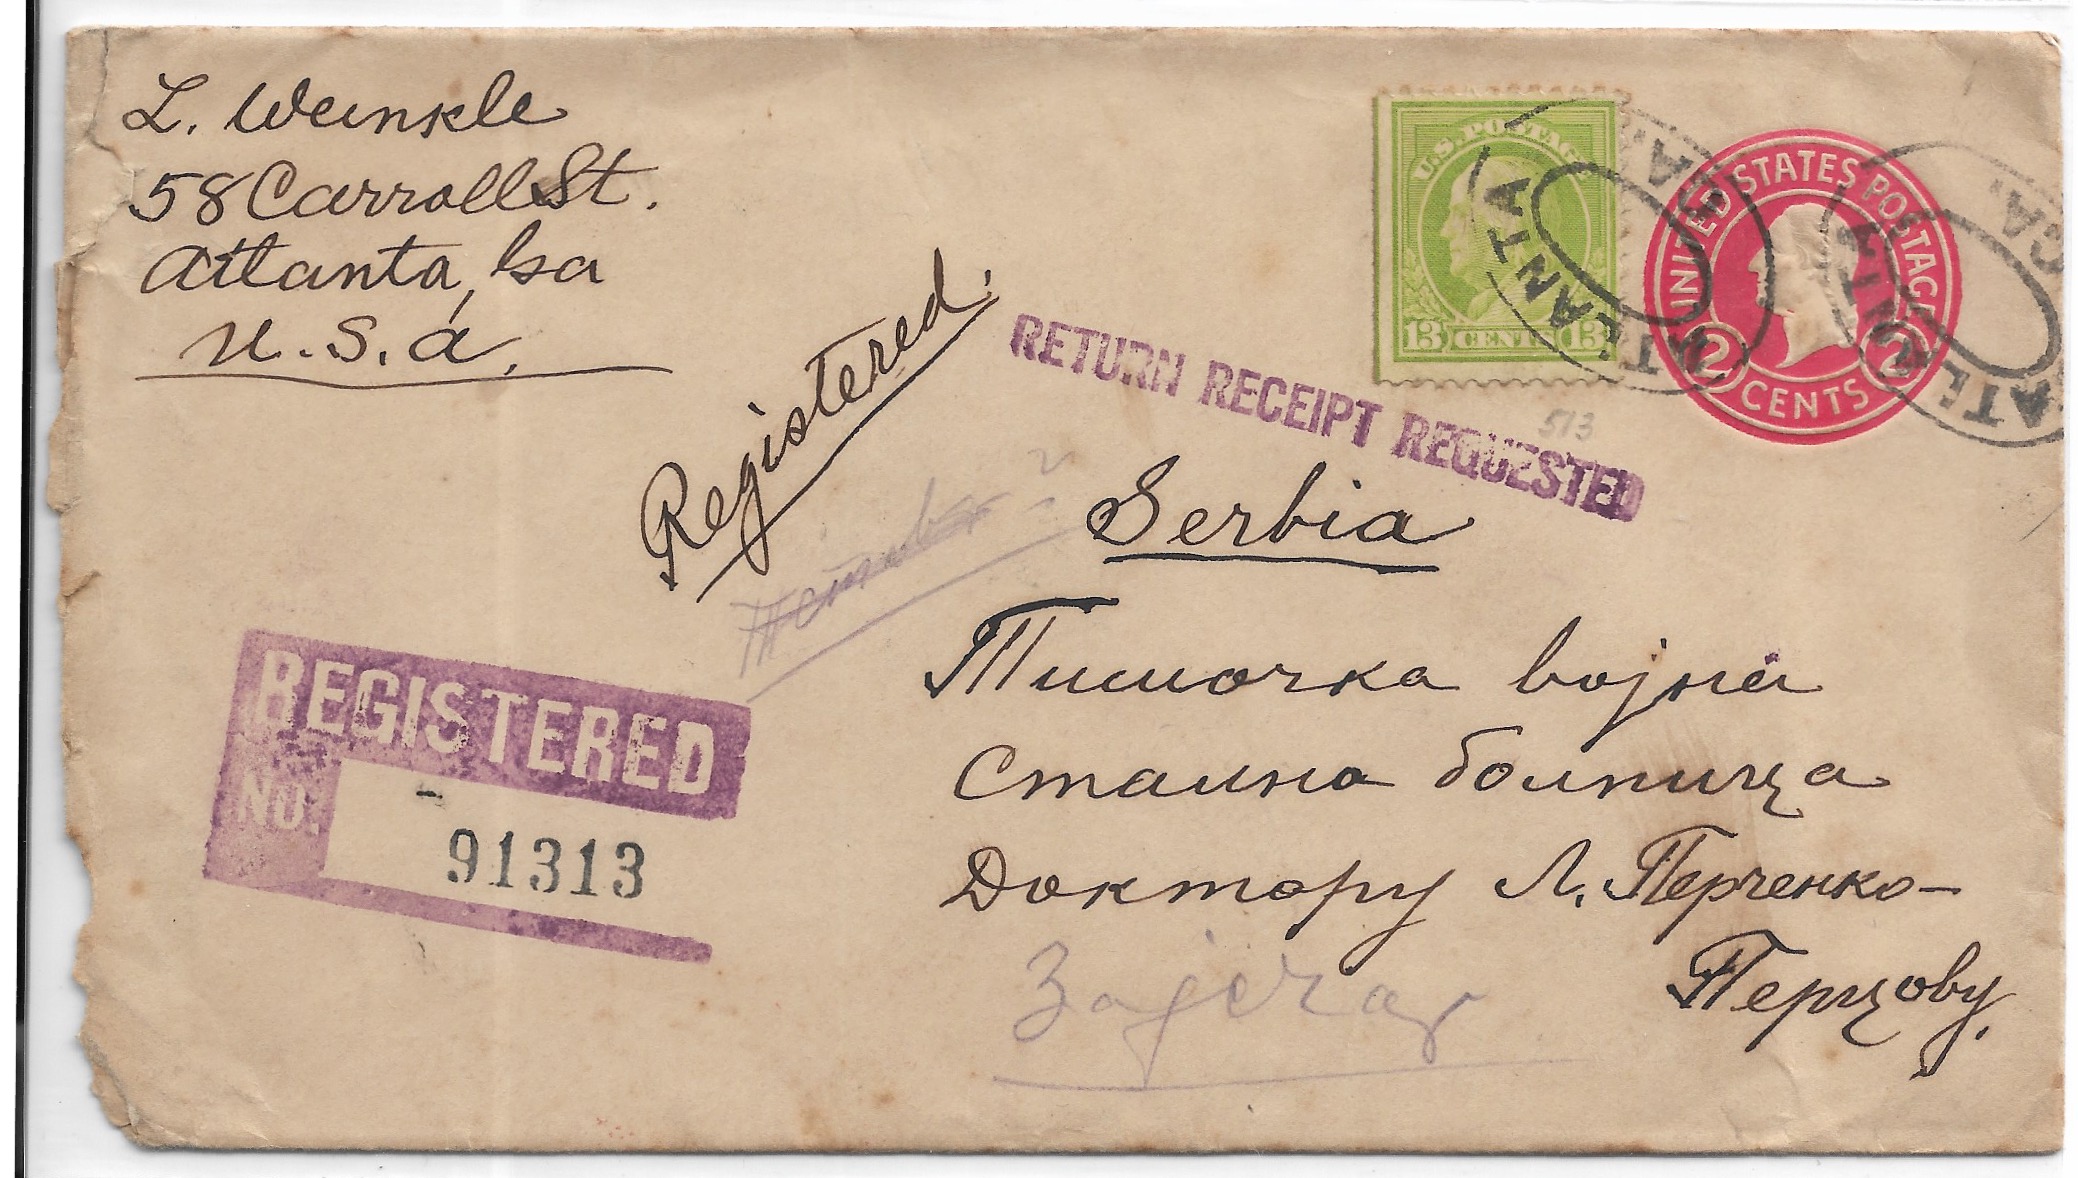 L. Weinkle
58 Carroll St.
Atlanta, Ga
U.S.A.
U.S. POSTAGE
13 CENTS 13
UNITED STATES POSTAGE
2 CENTS 2
ATLANTA, GA.
ATLANTA, GA.
513
Registered.
RETURN RECEIPT REQUESTED
Serbia
REGISTERED
No.
91313
Тимочка војна
Стална болница
Доктору Л. Перченко-
Перцову.
Зајечар